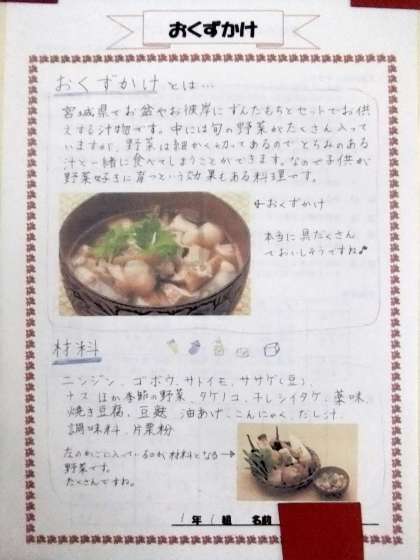 おくずかけ
おくずかけとは…
宮城県でお盆やお彼岸にずんだもちとセットでお供
えする汁物です。中には旬の野菜がたくさん入って
いますが、野菜は細かく切ってあるのでとろみのある
汁と一緒に食べてしまうことができます。なので子供が
野菜好きに育つという効果もある料理です。
←おくずかけ
本当に具だくさん
でおいしそうですね♪
材料
ニンジン、ゴボウ、サトイモ、ササゲ(豆)、
ナス ほか季節の野菜、タケノコ、干しシイタケ、薬味、
焼き豆腐、豆麩、油あげ、こんにゃく、だし汁、
調味料、片栗粉
左のかごに入っているのが材料となる→
野菜です。
たくさんですね。
1年1組 名前